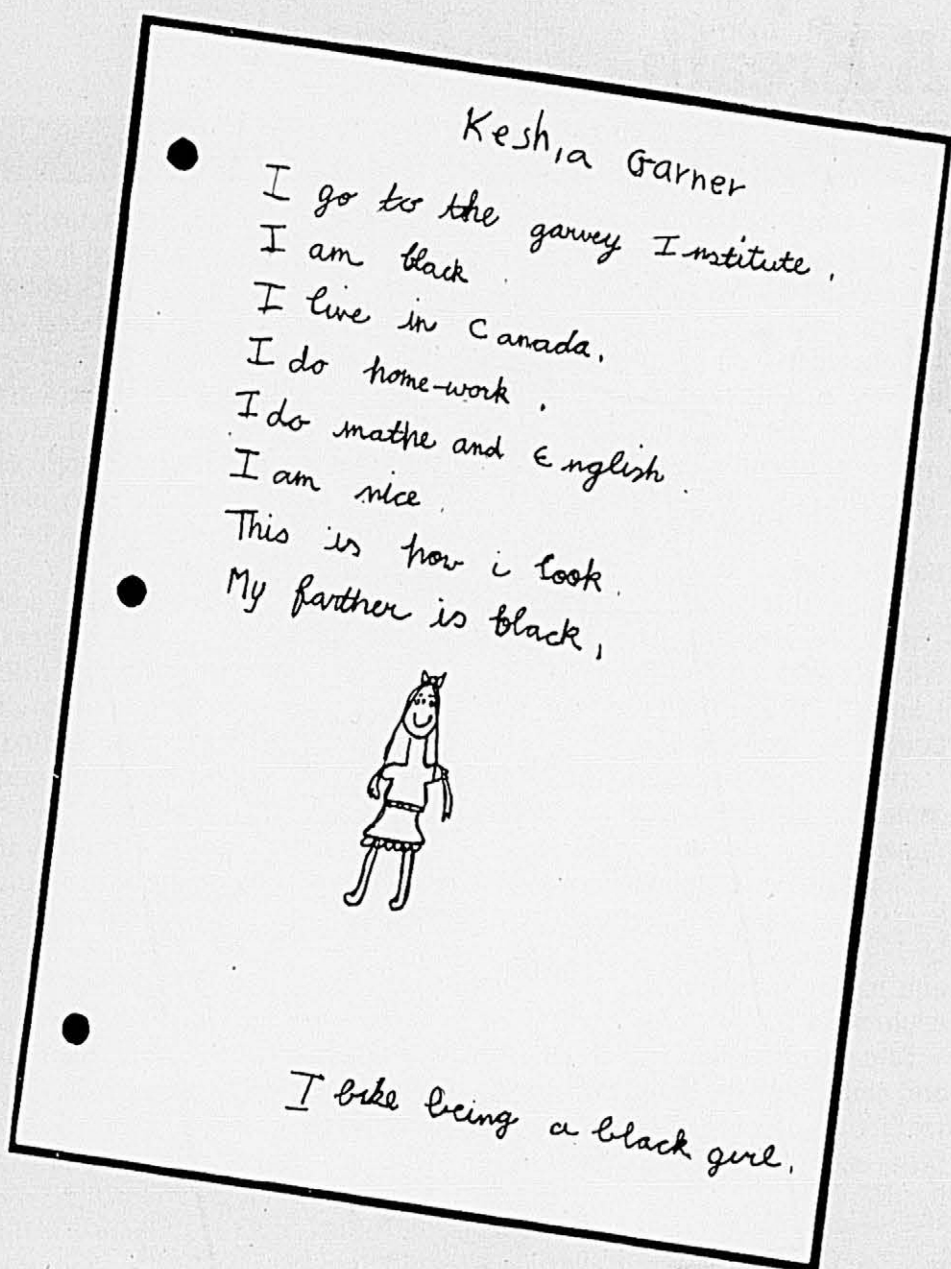 Keshia Garner
I go to the garvey Institute.
I am black.
I live in Canada.
I do home-work.
I do mathe and English.
I am nice.
This is how i look.
My farther is black.
I like being a black girl.